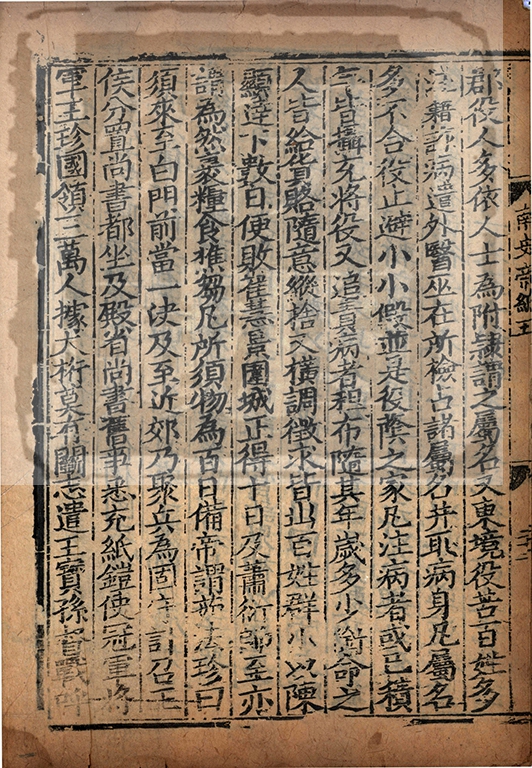 郡役人多依人士為附隷謂之屬名又東境役苦百姓多
注籍詐病遣外醫巫在所檢占諸屬名并取病身凡屬名
多不合役止避小小假並是役蔭之家凡注病者或已積
年皆攝充將役又追責病者租布隨其年歲多少銜命之
人皆給貨賂隨意縱捨又橫調徵求皆出百姓群小以陳
顯達下數日便敗崔慧景圍城正得十日及蕭衍師至亦
謂為然裹糧食樵芻凡所須物為百日備帝謂茹法珍曰
須來至白門前當一決及至近郊乃聚兵為固守計召王
侯分置尚書都坐及殿省尚書舊事悉充紙鎧使冠軍將
軍王珍國領三萬人據大桁莫有鬭志遣王寶孫督戰呼
南史齊紀五